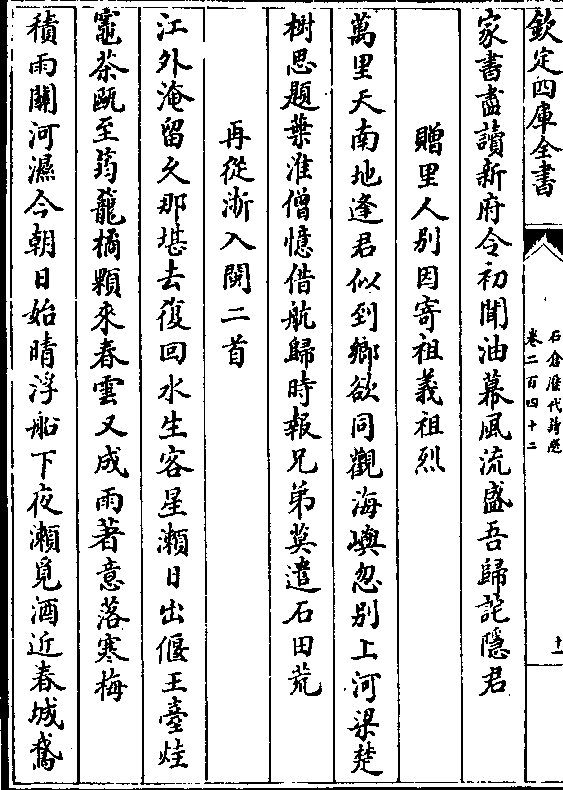 欽定四庫全書
石倉歷代詩選
卷二百四十二
十一
家書盡讀新府令初聞油幕風流盛吾歸詫隱君
贈里人別因寄祖義祖烈
萬里天南地逢君似到鄉欲同觀海嶼忽別上河梁楚
樹思題葉淮僧憶借航歸時報兄弟莫遣石田荒
再從浙入閩二首
江外淹留久那堪去復回水生客星瀨日出偃王臺烓
竈茶甌至筠籠橘顆來春雲又成雨著意落寒梅
積雨關河濕今朝日始晴浮船下夜瀨覓酒近春城鵞